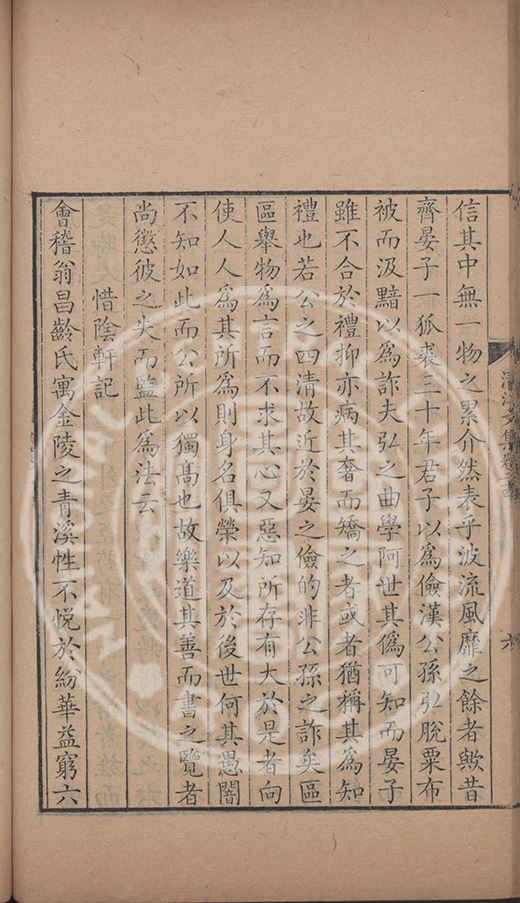 信其中無一物之累介然表乎波流風靡之餘者歟昔
齊晏子一狐裘三十年君子以爲儉漢公孫弘脫粟布
被而汲黯以爲詐夫弘之曲學阿世其僞可知而晏子
雖不合於禮抑亦病其奢而矯之者或者猶稱其爲知
禮也若公之四清故近於晏之儉的非公孫之詐矣區
區舉物爲言而不求其心又惡知所存有大於是者向
使人人爲其所爲則身名俱榮以及於後世何其愚闇
不知如此而公所以獨高也故樂道其善而書之覽者
尚懲彼之失而監此爲法云
惜陰軒記
會稽翁昌齡氏寓金陵之青溪性不悅於紛華益窮六